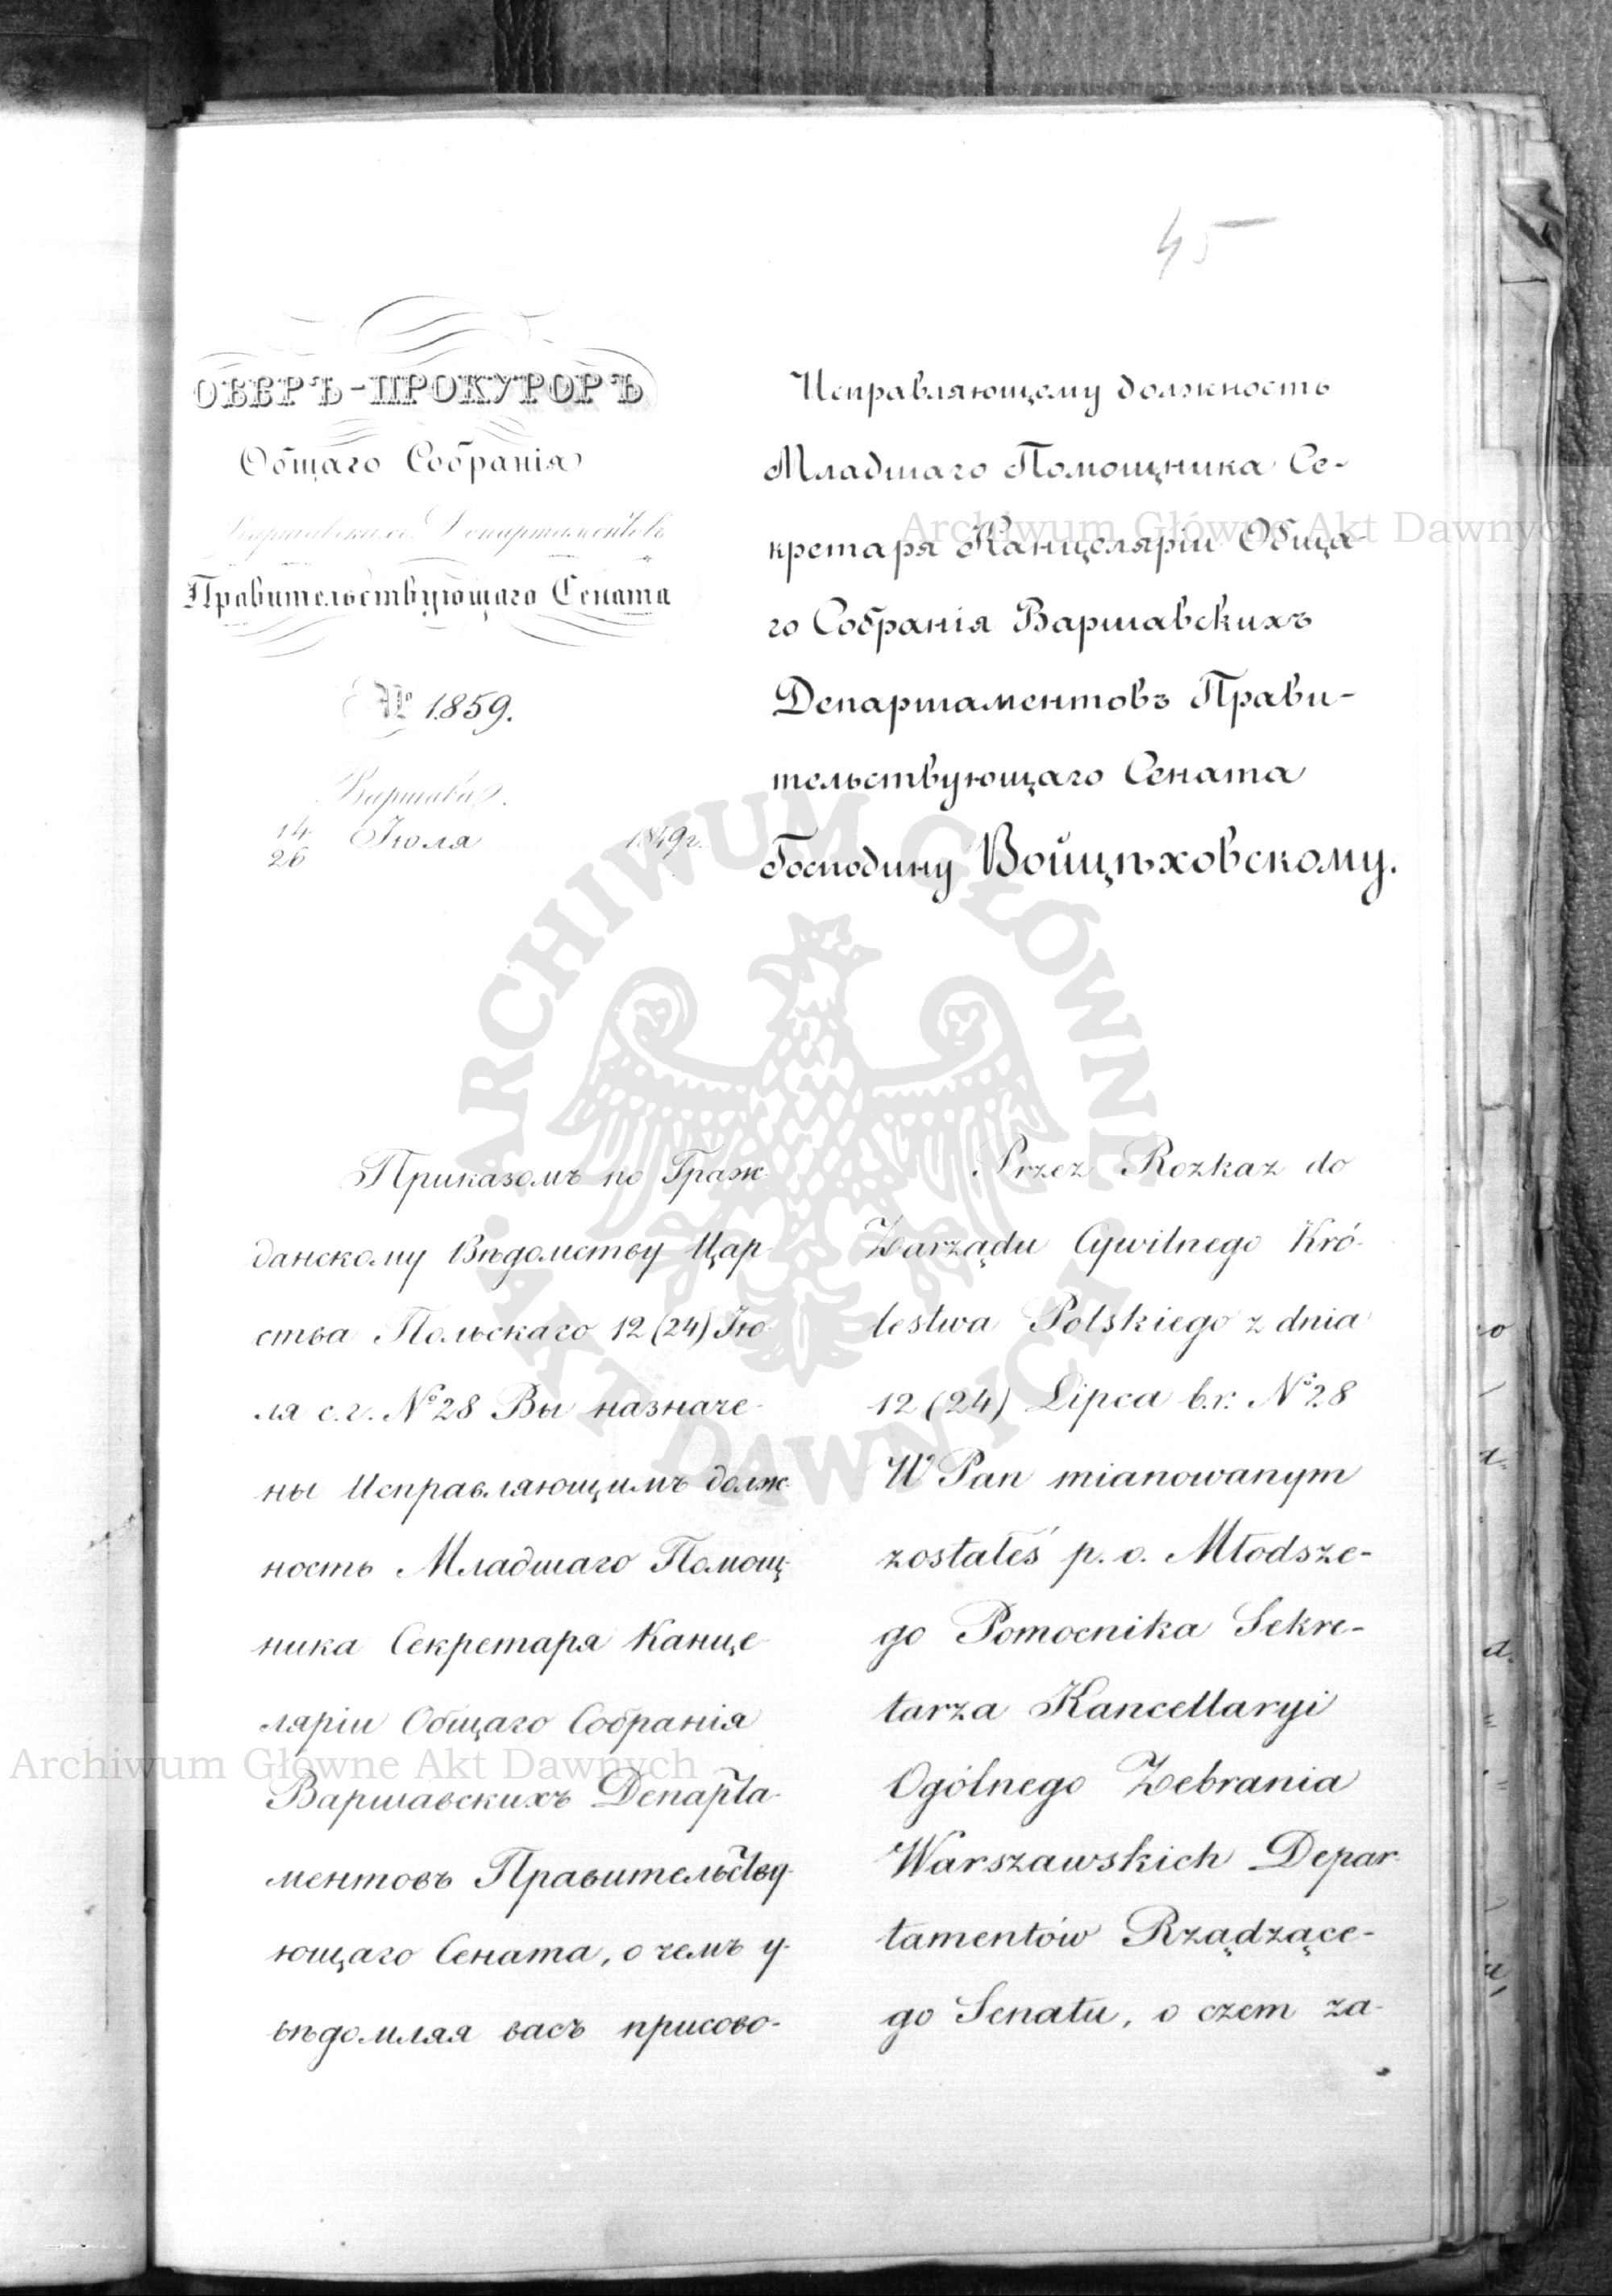 45
ОБЕРЪ-ПРОКУРОРЪ
Общаго Собранія
Варшавскихъ Департаментовъ
Правительствующаго Сената
№ 1859.
Варшава.
14/26 Іюля 1849 г.
Исправляющему должность
Младшаго Помощника Се-
кретаря Канцеляріи Обща-
го Собранія Варшавскихъ
Департаментовъ Прави-
тельствующаго Сената
Господину Войцѣховскому.
Приказомъ по Граж-
данскому Вѣдомству Цар-
ства Польскаго 12 (24) Ію-
ля с. г. № 28 Вы назначе-
ны Исправляющимъ долж-
ность Младшаго Помощ-
ника Секретаря Канце-
ляріи Общаго Собранія
Варшавскихъ Департа-
ментовъ Правительству-
ющаго Сената, о чемъ у-
вѣдомляя васъ присово-
Przez Rozkaz do
Zarządu Cywilnego Kró-
lestwa Polskiego z dnia
12 (24) Lipca b. r. № 28
W Pan mianowanym
zostałeś p. o. Młodsze-
go Pomocnika Sekre-
tarza Kancellaryi
Ogólnego Zebrania
Warszawskich Depar-
tamentów Rządzące-
go Senatu, o czem za-
Archiwum Główne Akt Dawnych
ARCHIWUM GŁÓWNE AKT DAWNYCH
Archiwum Główne Akt Dawnych